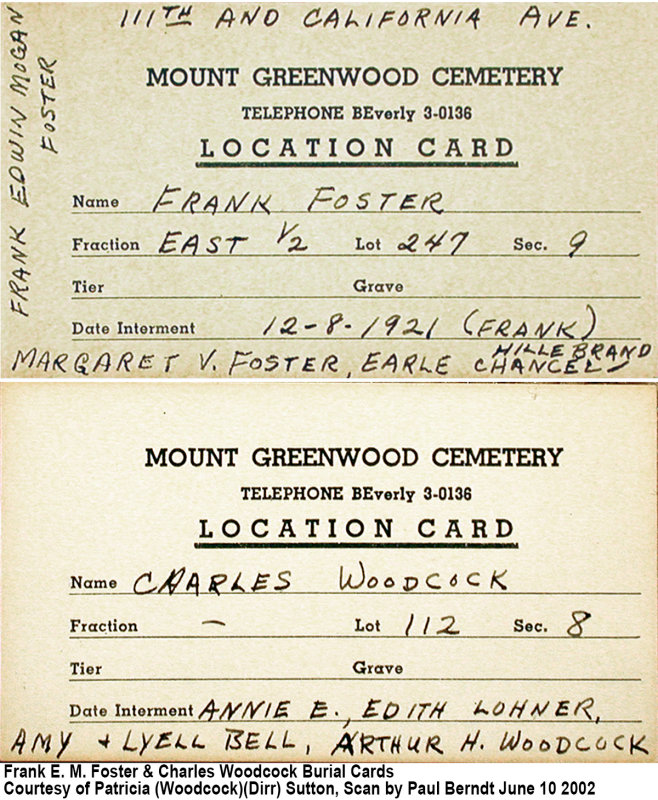 111TH AND CALIFORNIA AVE.
FRANK EDWIN MOGAN
FOSTER
MOUNT GREENWOOD CEMETERY
TELEPHONE BEverly 3-0136
LOCATION CARD
Name FRANK FOSTER
Fraction EAST 1/2 Lot 247 Sec. 9
Tier Grave
Date Interment 12-8-1921 (FRANK)
HILLEBRAND
MARGARET V. FOSTER, EARLE CHANCEL
MOUNT GREENWOOD CEMETERY
TELEPHONE BEverly 3-0136
LOCATION CARD
Name CHARLES WOODCOCK
Fraction — Lot 112 Sec. 8
Tier Grave
Date Interment ANNIE E., EDITH LOHNER,
AMY + LYELL BELL, ARTHUR H. WOODCOCK
Frank E. M. Foster & Charles Woodcock Burial Cards
Courtesy of Patricia (Woodcock)(Dirr) Sutton, Scan by Paul Berndt June 10 2002